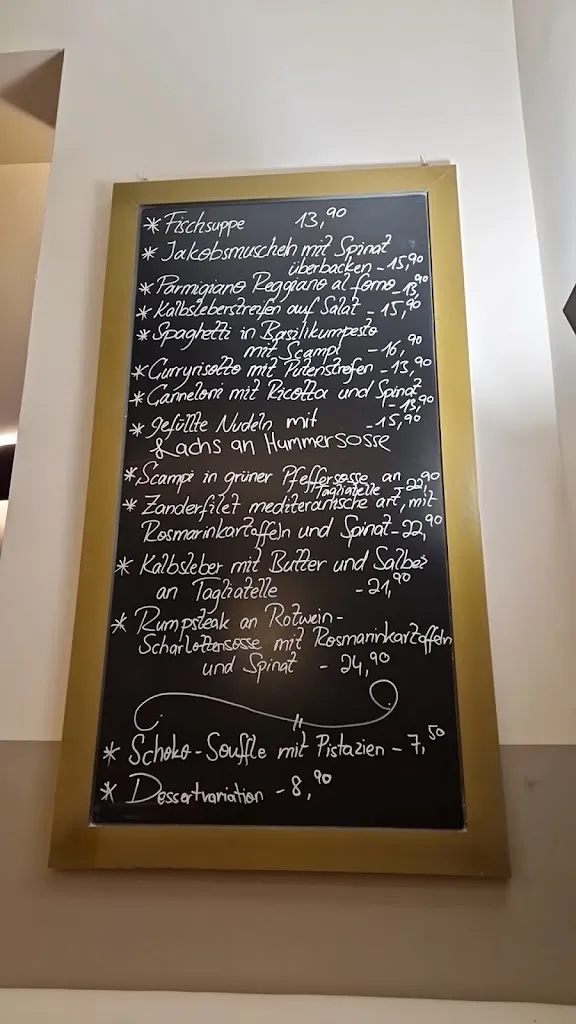 * Fischsuppe 13,90
* Jakobsmuscheln mit Spinat
überbacken - 15,90
* Parmigiano Reggiano al forno - 13,90
* Kalbsleberstreifen auf Salat - 15,90
* Spaghetti in Basilikumpesto
mit Scampi - 16,90
* Curryrisotto mit Putenstreifen - 13,90
* Canneloni mit Ricotta und Spinat
- 13,90
* gefüllte Nudeln mit - 15,90
Lachs an Hummersosse
* Scampi in grüner Pfeffersosse an
Tagliatelle - 22,90
* Zanderfilet mediteranische art, mit
Rosmarinkartoffeln und Spinat - 22,90
* Kalbsleber mit Butter und Salbei
an Tagliatelle - 21,90
* Rumpsteak an Rotwein-
Scharlottensosse mit Rosmarinkartoffeln
und Spinat - 24,90
* Schoko-Souffle mit Pistazien - 7,50
* Dessertvariation - 8,90